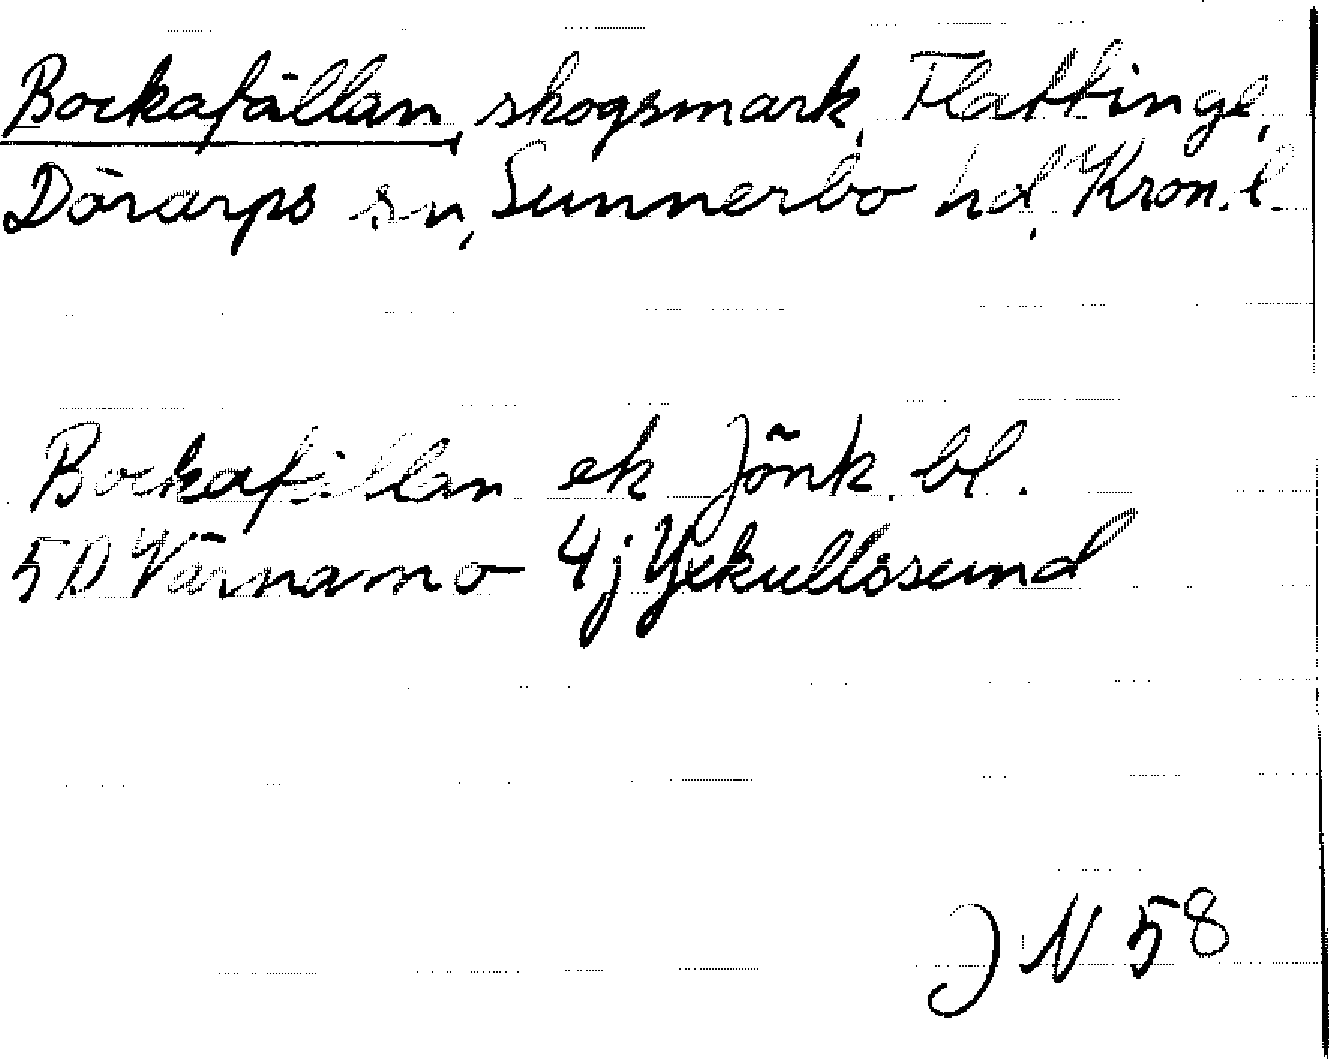 Bockafällan, skogsmark, Flattinge,
Dörarps sn, Sunnerbo hd, Kron.l.
Bockafällan ek Jönk. bl.
5D Värnamo 4j Yxkullssund
J N 58